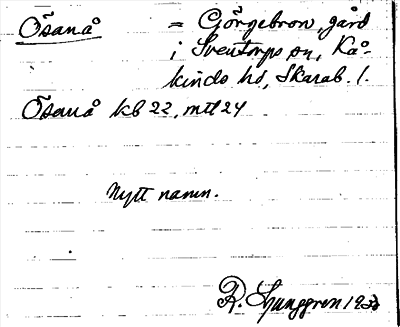 Ösanå = Görgebron, gård
i Sventorps sn, Kå-
kinds hd, Skarab. l.
Ösanå kb 22, mtl 24
Nytt namn.
R. Ljunggren 1933